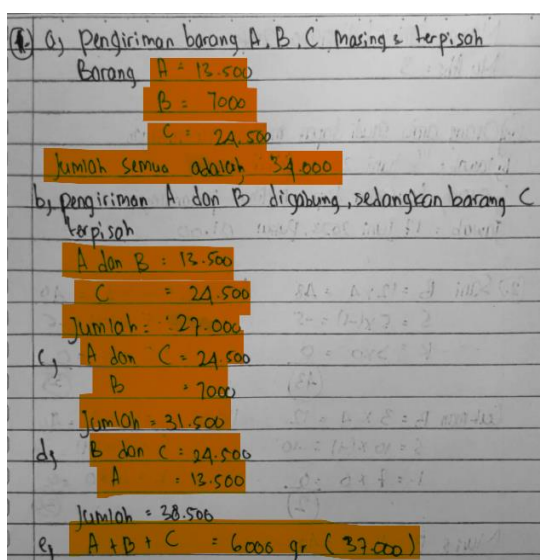 1. a, Pengiriman barang A, B, C masing2 terpisah
Barang A = 13.500
B = 7000
C = 24.500
Jumlah semua adalah 34.000
b, pengiriman A dan B digabung, sedangkan barang C
terpisah
A dan B = 13.500
C = 24.500
Jumlah = 27.000
c, A dan C = 24.500
B = 7000
Jumlah = 31.500
d, B dan C = 24.500
A = 13.500
Jumlah = 38.500
e, A + B + C = 6000 gr (37.000)